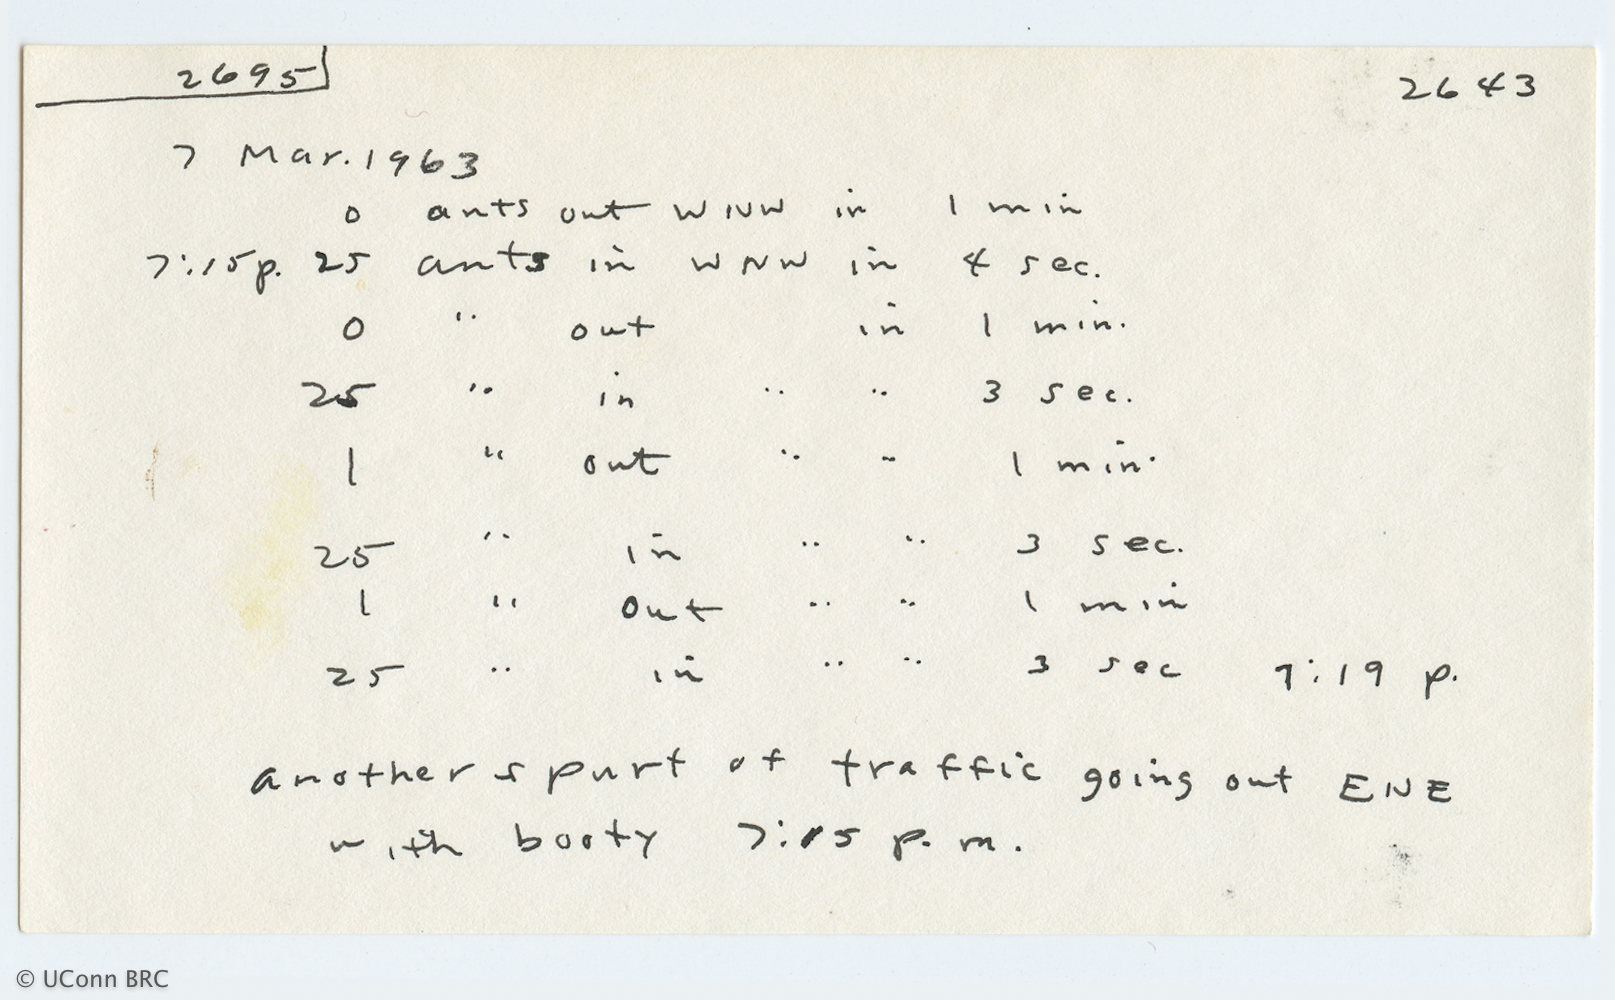 2695
2643
7 Mar. 1963
0 ants out WNW in 1 min
7:15p. 25 ants in WNW in 4 sec.
0 " out in 1 min.
25 " in " " 3 sec.
1 " out " " 1 min.
25 " in " " 3 sec.
1 " out " " 1 min
25 " in " " 3 sec 7:19 p.
another spurt of traffic going out ENE
with booty 7:15 p.m.
© UConn BRC